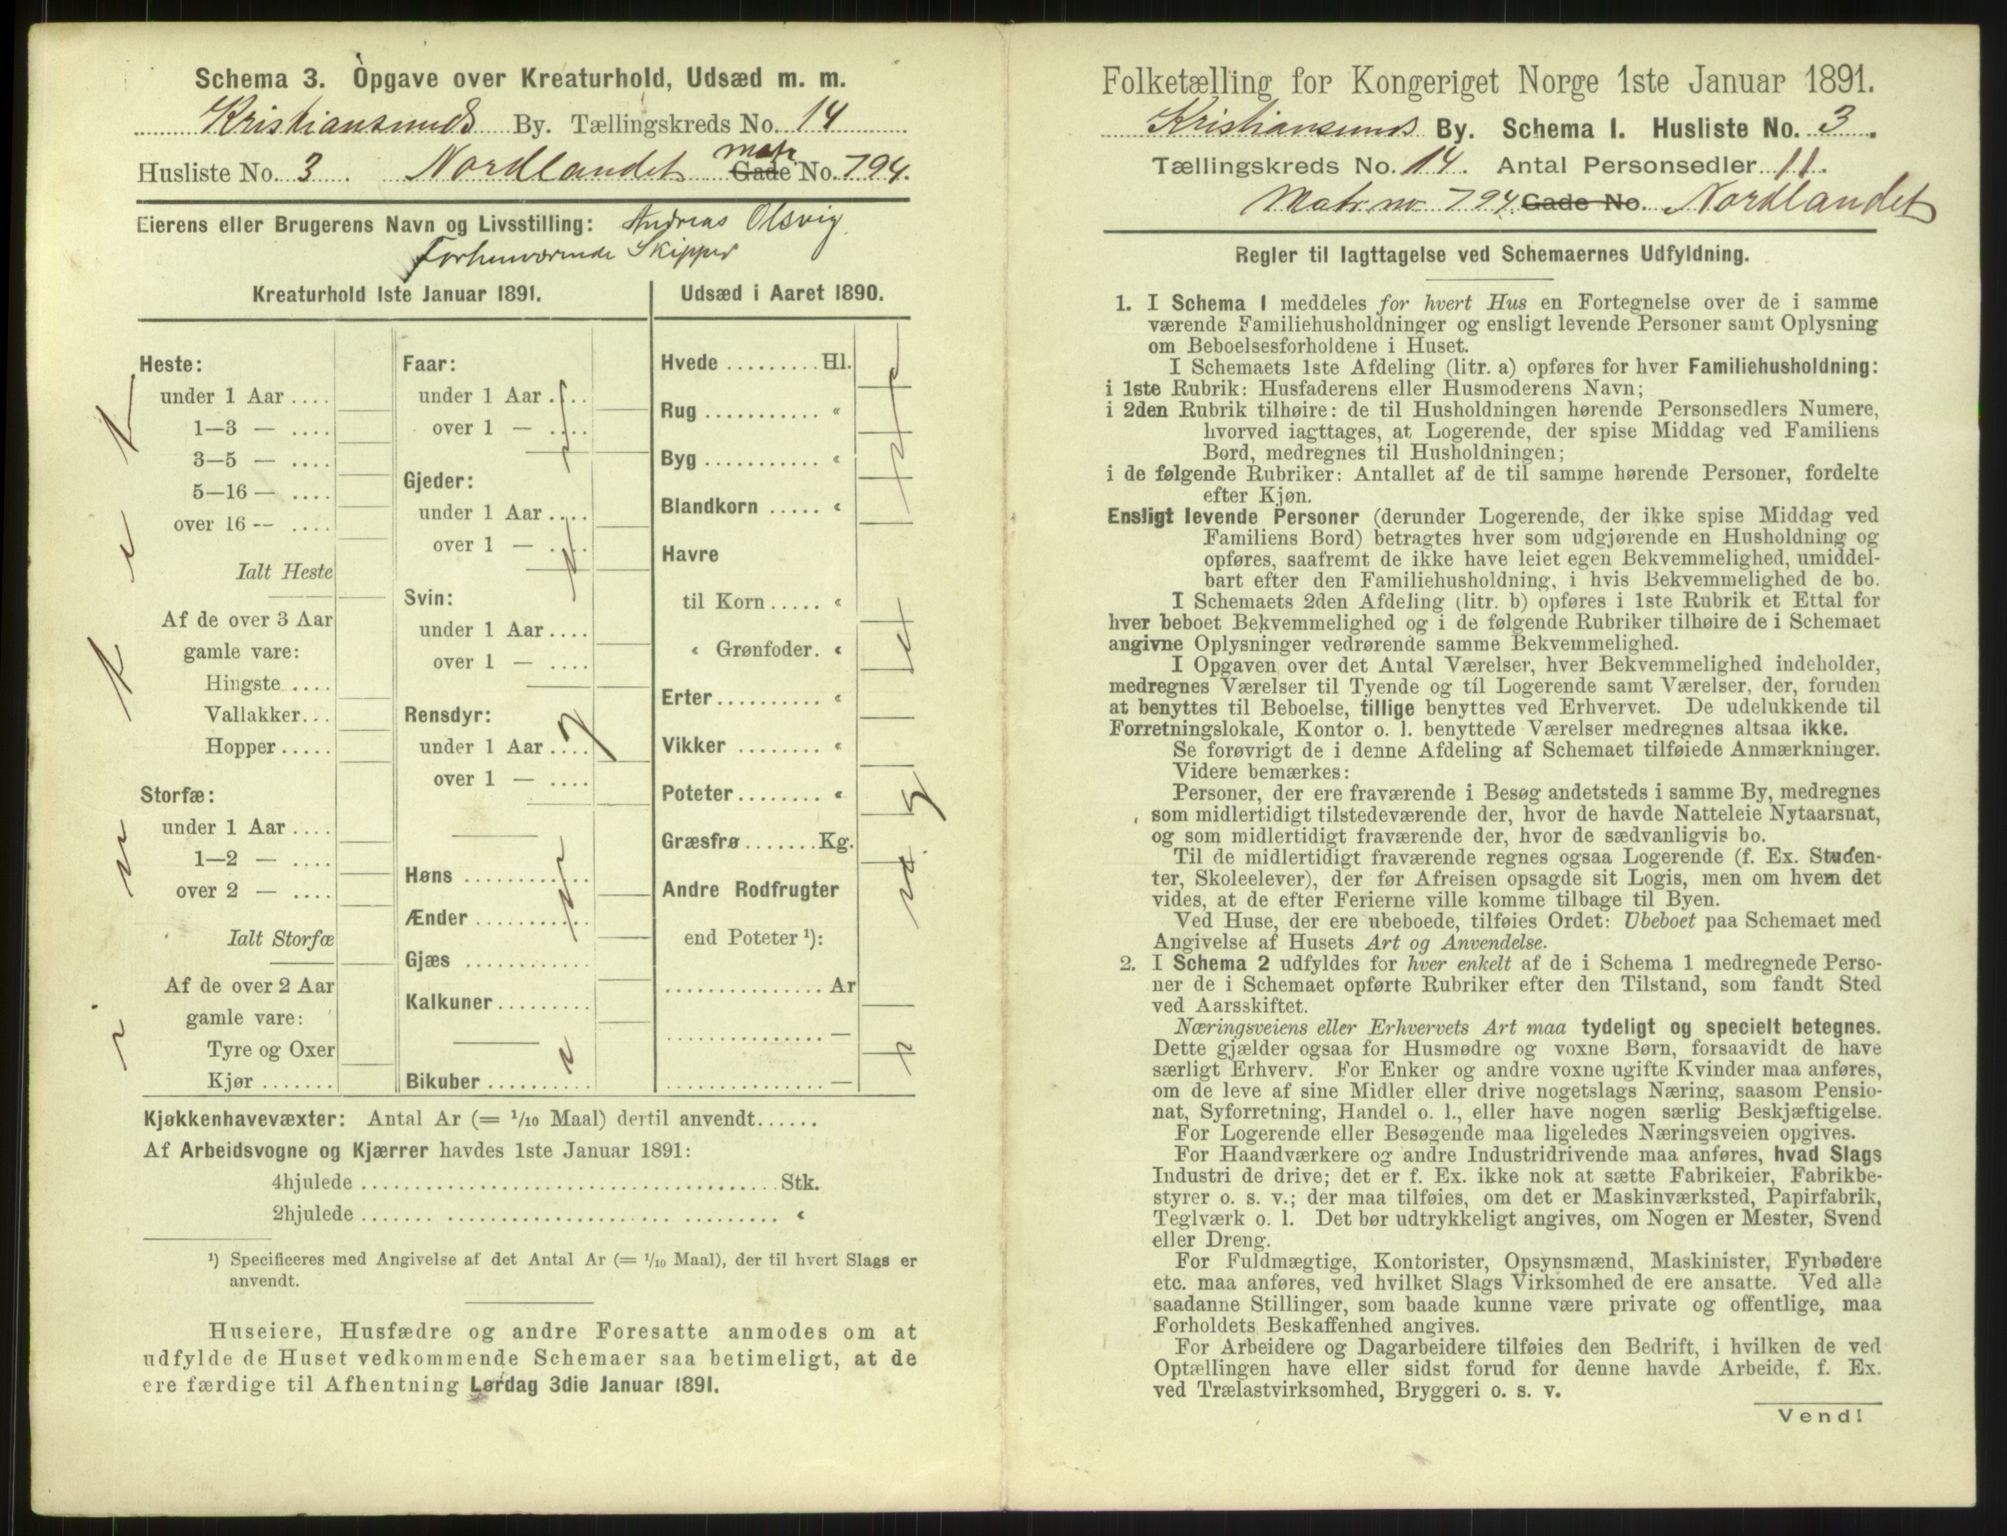 Schema 3. Opgave over Kreaturhold, Udsæd m. m.
Kristiansunds By. Tællingskreds No. 14
Husliste No. 3. Nordlandet Matr. Gade No. 794.
Eierens eller Brugerens Navn og Livsstilling: Andreas Olsvig
Forhenværende Skipper
Kreaturhold 1ste Januar 1891.
Heste:
under 1 Aar ....
1—3 — ....
3—5 — ....
5—16 — ....
over 16 — ....
Ialt Heste
Af de over 3 Aar
gamle vare:
Hingste ....
Vallakker...
Hopper .....
Storfæ:
under 1 Aar ....
1—2 — ....
over 2 — ....
Ialt Storfæ
Af de over 2 Aar
gamle vare:
Tyre og Oxer
Kjør .......
Faar:
under 1 Aar ....
over 1 — ....
Gjeder:
under 1 Aar ....
over 1 — ....
Svin:
under 1 Aar ....
over 1 — ....
Rensdyr:
under 1 Aar ....
over 1 — ....
Høns ............
Ænder ...........
Gjæs ............
Kalkuner .........
Bikuber ..........
Udsæd i Aaret 1890.
Hvede ......... Hl.
Rug ........... «
Byg ........... «
Blandkorn ..... «
Havre
til Korn ..... «
« Grønfoder. «
Erter .......... «
Vikker ........ «
Poteter ........ «
Græsfrø ....... Kg.
Andre Rodfrugter
end Poteter ¹):
............... Ar
............... —
............... —
Kjøkkenhavevæxter: Antal Ar (= 1/10 Maal) dertil anvendt......
Af Arbeidsvogne og Kjærrer havdes 1ste Januar 1891:
4hjulede ....................................... Stk.
2hjulede ....................................... «
¹) Specificeres med Angivelse af det Antal Ar (= 1/10 Maal), der til hvert Slags er
anvendt.
Huseiere, Husfædre og andre Foresatte anmodes om at
udfylde de Huset vedkommende Schemaer saa betimeligt, at de
ere færdige til Afhentning Lørdag 3die Januar 1891.
Folketælling for Kongeriget Norge 1ste Januar 1891.
Kristiansunds By. Schema 1. Husliste No. 3.
Tællingskreds No. 14. Antal Personsedler 11.
Matr. no. 794 Gade No. Nordlandet
Regler til Iagttagelse ved Schemaernes Udfyldning.
1. I Schema 1 meddeles for hvert Hus en Fortegnelse over de i samme
værende Familiehusholdninger og ensligt levende Personer samt Oplysning
om Beboelsesforholdene i Huset.
I Schemaets 1ste Afdeling (litr. a) opføres for hver Familiehusholdning:
i 1ste Rubrik: Husfaderens eller Husmoderens Navn;
i 2den Rubrik tilhøire: de til Husholdningen hørende Personsedlers Numere,
hvorved iagttages, at Logerende, der spise Middag ved Familiens
Bord, medregnes til Husholdningen;
i de følgende Rubriker: Antallet af de til samme hørende Personer, fordelte
efter Kjøn.
Ensligt levende Personer (derunder Logerende, der ikke spise Middag ved
Familiens Bord) betragtes hver som udgjørende en Husholdning og
opføres, saafremt de ikke have leiet egen Bekvemmelighed, umiddel-
bart efter den Familiehusholdning, i hvis Bekvemmelighed de bo.
I Schemaets 2den Afdeling (litr. b) opføres i 1ste Rubrik et Ettal for
hver beboet Bekvemmelighed og i de følgende Rubriker tilhøire de i Schemaet
angivne Oplysninger vedrørende samme Bekvemmelighed.
I Opgaven over det Antal Værelser, hver Bekvemmelighed indeholder,
medregnes Værelser til Tyende og til Logerende samt Værelser, der, foruden
at benyttes til Beboelse, tillige benyttes ved Erhvervet. De udelukkende til
Forretningslokale, Kontor o. l. benyttede Værelser medregnes altsaa ikke.
Se forøvrigt de i denne Afdeling af Schemaet tilføiede Anmærkninger.
Videre bemærkes:
Personer, der ere fraværende i Besøg andetsteds i samme By, medregnes
som midlertidigt tilstedeværende der, hvor de havde Natteleie Nytaarsnat,
og som midlertidigt fraværende der, hvor de sædvanligvis bo.
Til de midlertidigt fraværende regnes ogsaa Logerende (f. Ex. Studen-
ter, Skoleelever), der før Afreisen opsagde sit Logis, men om hvem det
vides, at de efter Ferierne ville komme tilbage til Byen.
Ved Huse, der ere ubeboede, tilføies Ordet: Ubeboet paa Schemaet med
Angivelse af Husets Art og Anvendelse.
2. I Schema 2 udfyldes for hver enkelt af de i Schema 1 medregnede Perso-
ner de i Schemaet opførte Rubriker efter den Tilstand, som fandt Sted
ved Aarsskiftet.
Næringsveiens eller Erhvervets Art maa tydeligt og specielt betegnes.
Dette gjælder ogsaa for Husmødre og voxne Børn, forsaavidt de have
særligt Erhverv. For Enker og andre voxne ugifte Kvinder maa anføres,
om de leve af sine Midler eller drive nogetslags Næring, saasom Pensio-
nat, Syforretning, Handel o. l., eller have nogen særlig Beskjæftigelse.
For Logerende eller Besøgende maa ligeledes Næringsveien opgives.
For Haandværkere og andre Industridrivende maa anføres, hvad Slags
Industri de drive; det er f. Ex. ikke nok at sætte Fabrikeier, Fabrikbe-
styrer o. s. v.; der maa tilføies, om det er Maskinværksted, Papirfabrik,
Teglværk o. l. Det bør udtrykkeligt angives, om Nogen er Mester, Svend
eller Dreng.
For Fuldmægtige, Kontorister, Opsynsmænd, Maskinister, Fyrbødere
etc. maa anføres, ved hvilket Slags Virksomhed de ere ansatte. Ved alle
saadanne Stillinger, som baade kunne være private og offentlige, maa
Forholdets Beskaffenhed angives.
For Arbeidere og Dagarbeidere tilføies den Bedrift, i hvilken de ved
Optællingen have eller sidst forud for denne havde Arbeide, f. Ex.
ved Trælastvirksomhed, Bryggeri o. s. v.
Vend!